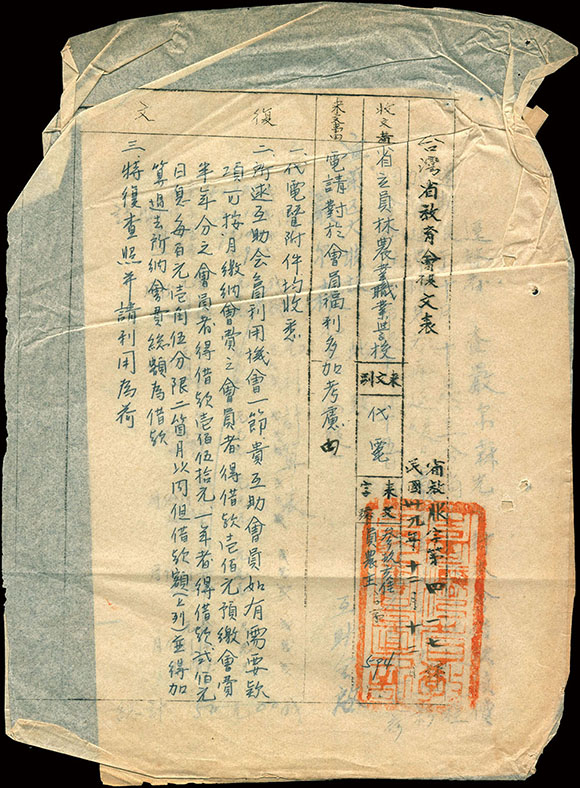 台灣省教育會復文表
省教服字第四一七號
民國卅九年十二月十二
收文者
省立員林農業職業學校
來文別
代電
來文字號
員農互
594
來電
電請對於會員福利多加考慮由
復
文
一、代電暨附件均收悉
二、所述互助会員利用機會一節貴互助會員如有需要款
項可按月繳納會費之會員者得借款壹佰元預繳會費
半年分之會員者得借款壹佰伍拾元一年者得借款貳佰元
日息每百元壹角伍分限二箇月以內但借款額(上列)並得加
算過去所納會員總額為借款
三、特復查照并請利用為荷